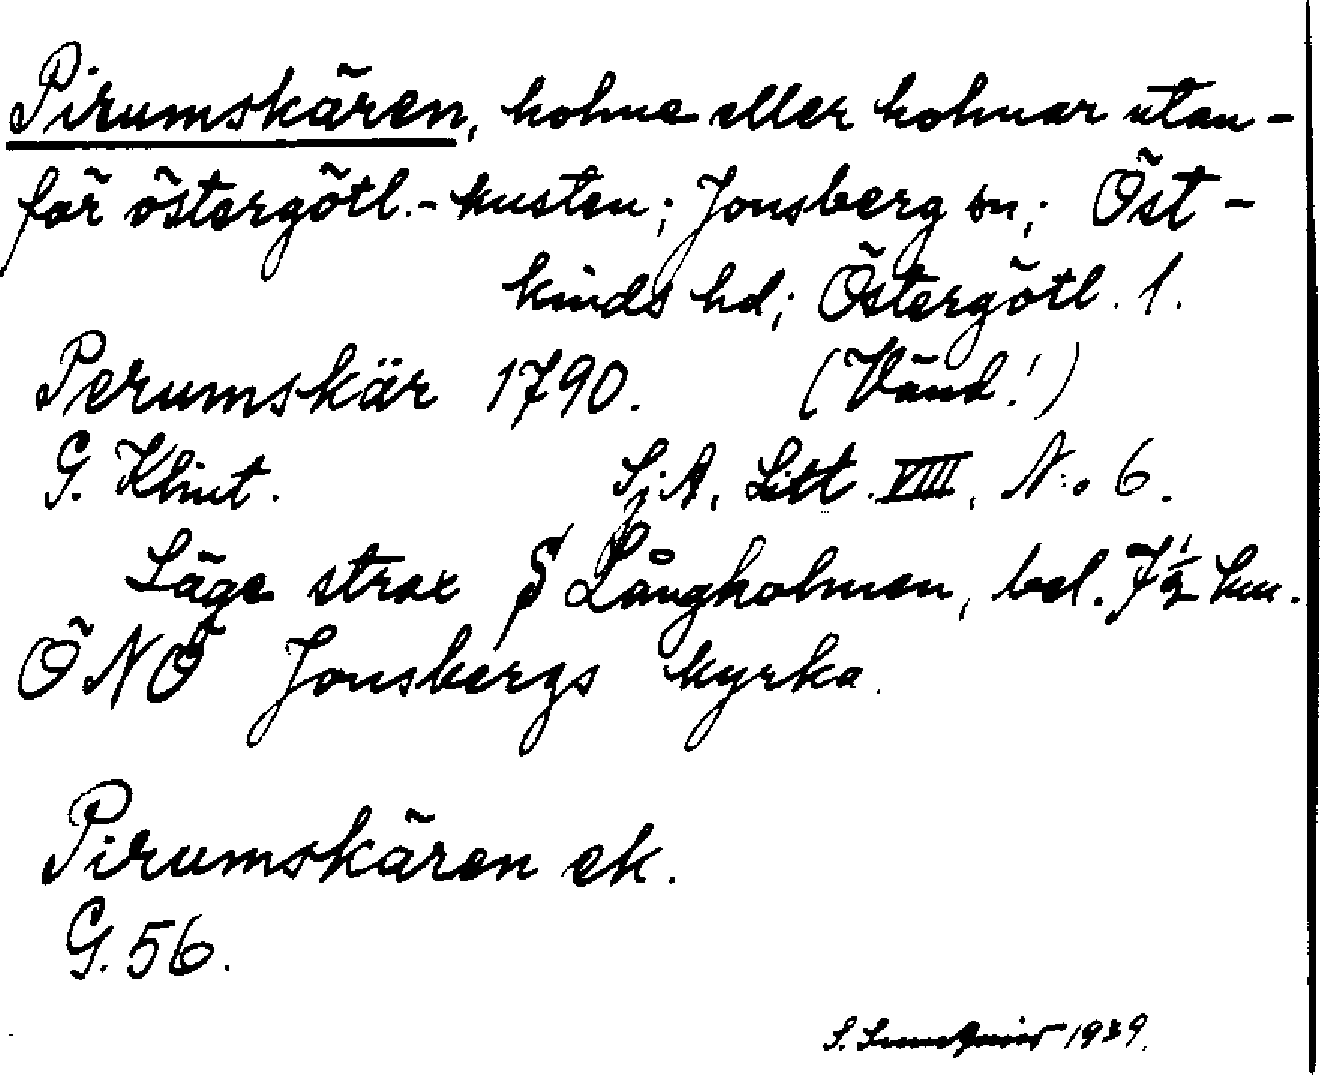 Pirumskären, holme eller holmar utan-
för östergötl.-kusten; Jonsberg sn; Öst-
kinds hd; Östergötl. l.
Perumskär 1790. (Vänd!)
G. Klint. Sj.A. Litt. VIII, No 6.
Läge strax S Långholmen, bel. 7½ km.
ÖNÖ Jonsbergs kyrka.
Pirumskären ek.
G. 56.
S. 1939.